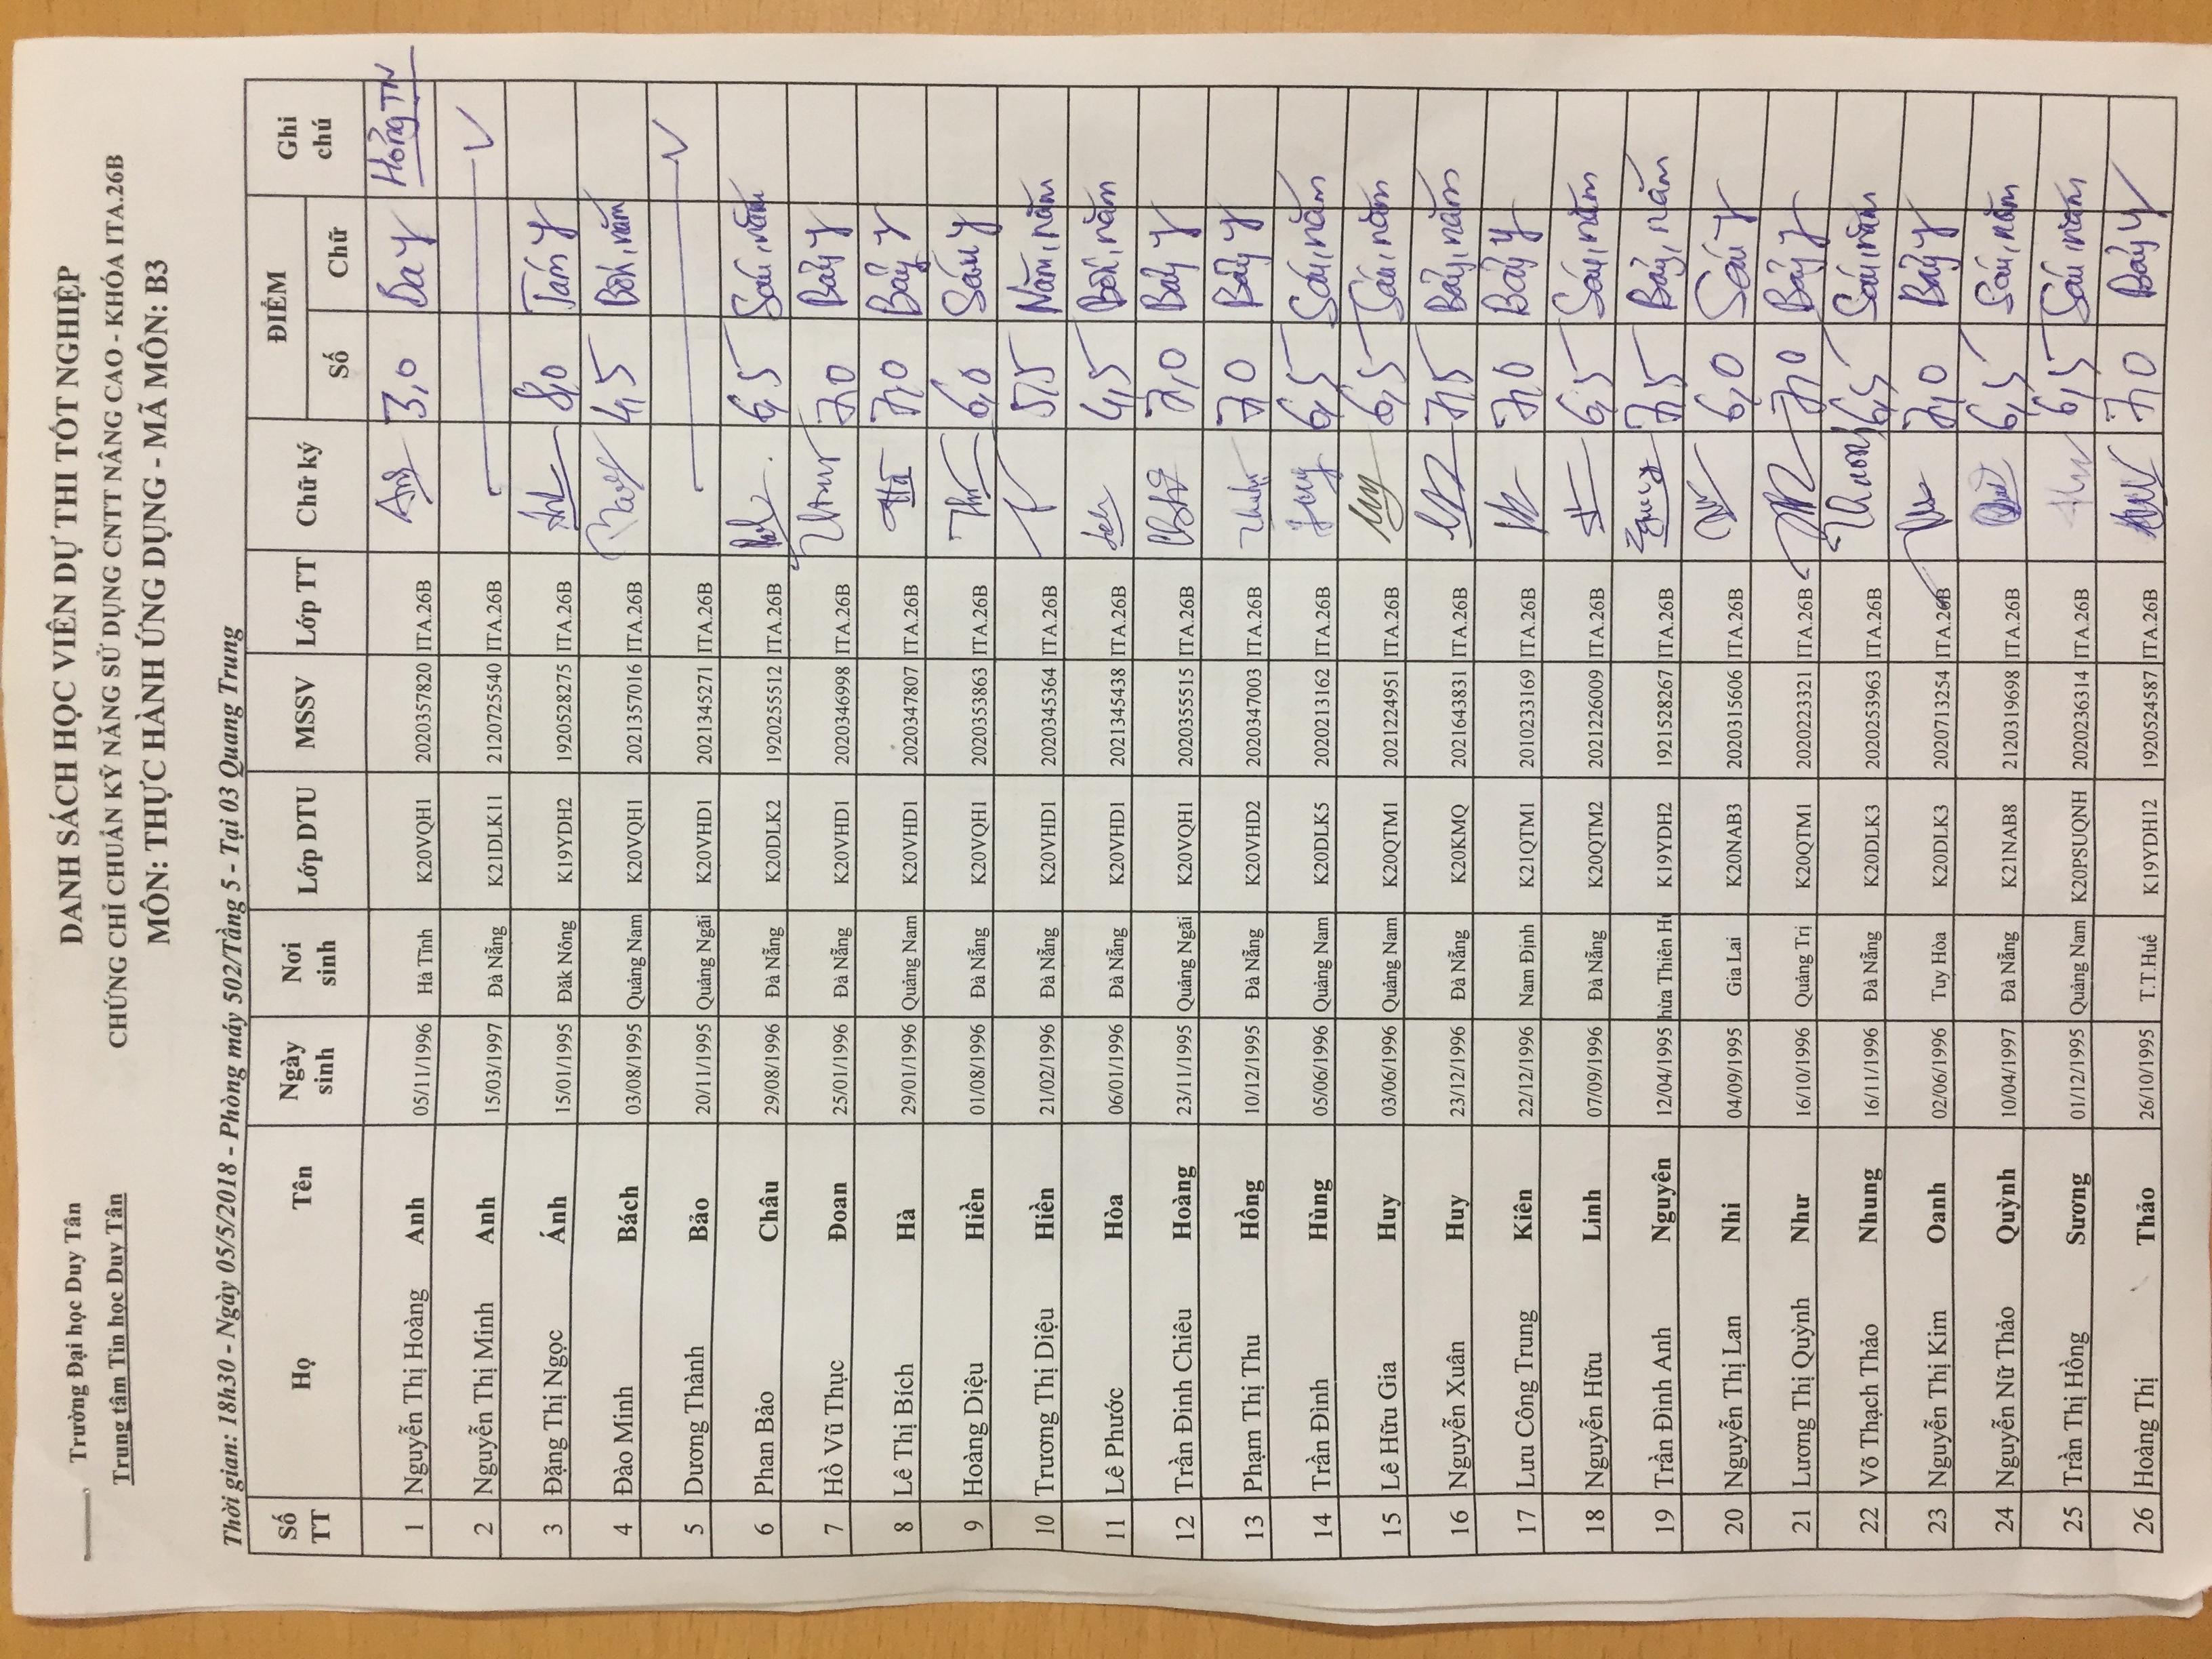 Trường Đại học Duy Tân
Trung tâm Tin học Duy Tân
DANH SÁCH HỌC VIÊN DỰ THI TỐT NGHIỆP
CHỨNG CHỈ CHUẨN KỸ NĂNG SỬ DỤNG CNTT NÂNG CAO - KHÓA ITA.26B
MÔN: THỰC HÀNH ỨNG DỤNG - MÃ MÔN: B3
Thời gian: 18h30 - Ngày 05/5/2018 - Phòng máy 502/Tầng 5 - Tại 03 Quang Trung
Số TT Họ Tên Ngày sinh Nơi sinh Lớp DTU MSSV Lớp TT Chữ ký ĐIỂM Số Chữ Ghi chú
1 Nguyễn Thị Hoàng Anh 05/11/1996 Hà Tĩnh K20VQH1 2020357820 ITA.26B Anh 3,0 Ba y Hỏng TN
2 Nguyễn Thị Minh Anh 15/03/1997 Đà Nẵng K21DLK11 2120725540 ITA.26B V
3 Đặng Thị Ngọc Ánh 15/01/1995 Đăk Nông K19YDH2 1920528275 ITA.26B 8,0 Tám y
4 Đào Minh Bách 03/08/1995 Quảng Nam K20VQH1 2021357016 ITA.26B 4,5 Bốn, năm
5 Dương Thành Bảo 20/11/1995 Quảng Ngãi K20VHD1 2021345271 ITA.26B V
6 Phan Bảo Châu 29/08/1996 Đà Nẵng K20DLK2 1920255512 ITA.26B 6,5 Sáu, năm
7 Hồ Vũ Thục Đoan 25/01/1996 Đà Nẵng K20VHD1 2020346998 ITA.26B 7,0 Bảy y
8 Lê Thị Bích Hà 29/01/1996 Quảng Nam K20VHD1 2020347807 ITA.26B Hà 7,0 Bảy y
9 Hoàng Diệu Hiền 01/08/1996 Đà Nẵng K20VQH1 2020353863 ITA.26B 6,0 Sáu y
10 Trương Thị Diệu Hiền 21/02/1996 Đà Nẵng K20VHD1 2020345364 ITA.26B 5,5 Năm, năm
11 Lê Phước Hòa 06/01/1996 Đà Nẵng K20VHD1 2021345438 ITA.26B 4,5 Bốn, năm
12 Trần Đình Chiêu Hoàng 23/11/1995 Quảng Ngãi K20VQH1 2020355515 ITA.26B 7,0 Bảy y
13 Phạm Thị Thu Hồng 10/12/1995 Đà Nẵng K20VHD2 2020347003 ITA.26B 7,0 Bảy y
14 Trần Đình Hùng 05/06/1996 Quảng Nam K20DLK5 2020213162 ITA.26B 6,5 Sáu, năm
15 Lê Hữu Gia Huy 03/06/1996 Quảng Nam K20QTM1 2021224951 ITA.26B Huy 6,5 Sáu, năm
16 Nguyễn Xuân Huy 23/12/1996 Đà Nẵng K20KMQ 2021643831 ITA.26B 7,5 Bảy, năm
17 Lưu Công Trung Kiên 22/12/1996 Nam Định K21QTM1 2010233169 ITA.26B 7,0 Bảy y
18 Nguyễn Hữu Linh 07/09/1996 Đà Nẵng K20QTM2 2021226009 ITA.26B 6,5 Sáu, năm
19 Trần Đình Anh Nguyên 12/04/1995 hừa Thiên H K19YDH2 1921528267 ITA.26B 7,5 Bảy, năm
20 Nguyễn Thị Lan Nhi 04/09/1995 Gia Lai K20NAB3 2020315606 ITA.26B 6,0 Sáu y
21 Lương Thị Quỳnh Như 16/10/1996 Quảng Trị K20QTM1 2020223321 ITA.26B 7,0 Bảy y
22 Võ Thạch Thảo Nhung 16/11/1996 Đà Nẵng K20DLK3 2020253963 ITA.26B 6,5 Sáu, năm
23 Nguyễn Thị Kim Oanh 02/06/1996 Tuy Hòa K20DLK3 2020713254 ITA.26B 7,0 Bảy y
24 Nguyễn Nữ Thảo Quỳnh 10/04/1997 Đà Nẵng K21NAB8 2120319698 ITA.26B 6,5 Sáu, năm
25 Trần Thị Hồng Sương 01/12/1995 Quảng Nam K20PSUQNH 2020236314 ITA.26B 6,5 Sáu, năm
26 Hoàng Thị Thảo 26/10/1995 T.T.Huế K19YDH12 1920524587 ITA.26B 7,0 Bảy y